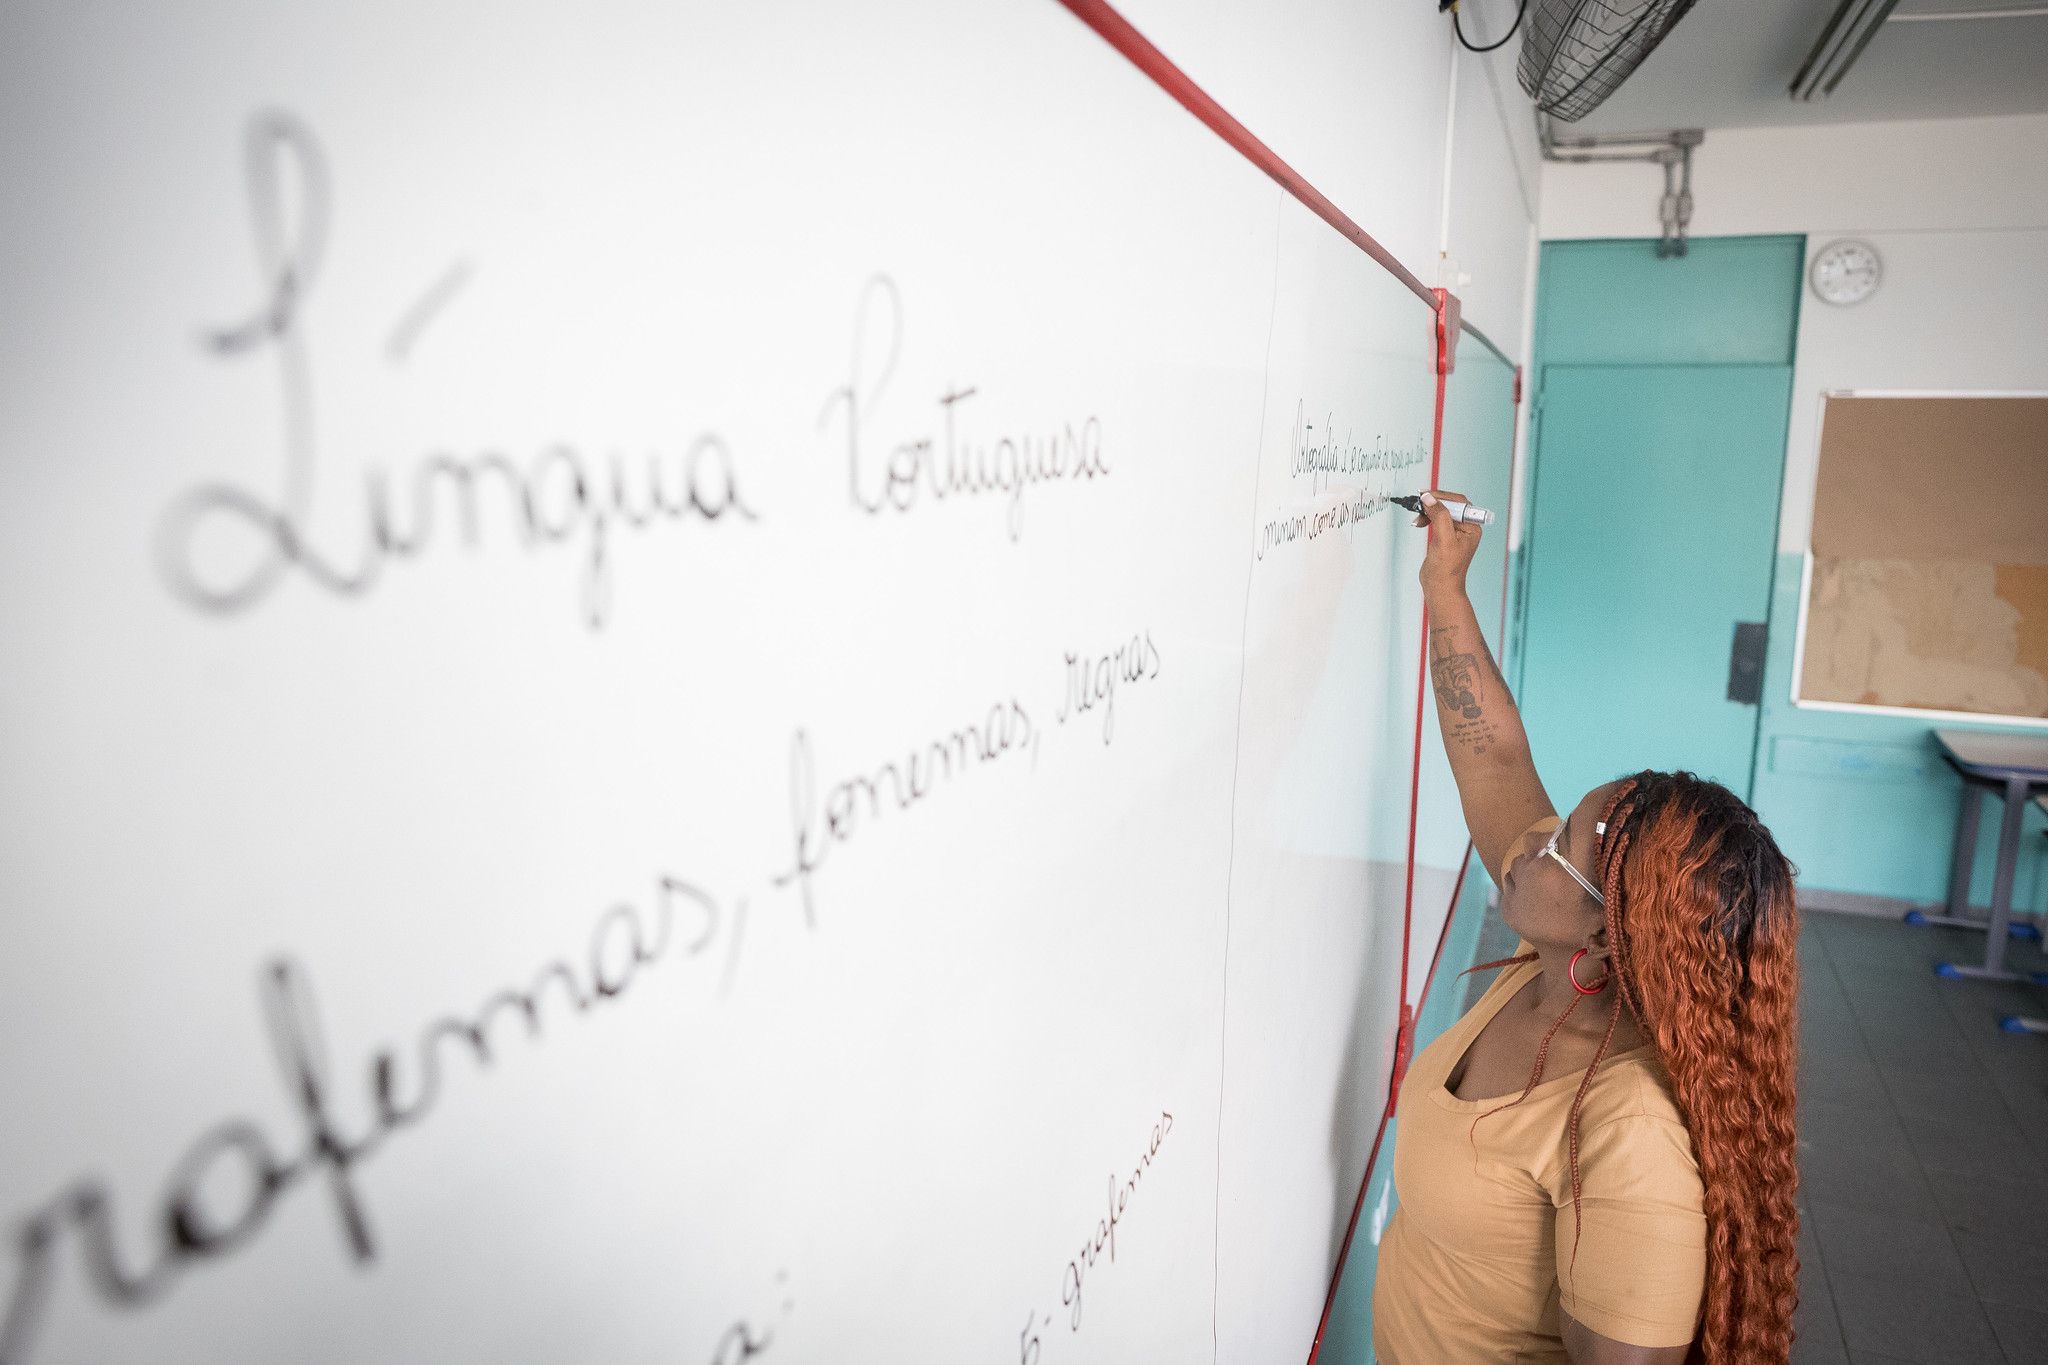 Língua Portuguesa
rafemas, fonemas, regras
a:
5- grafemas
Ortografia é o conjunto de regras que
minam como as palavras